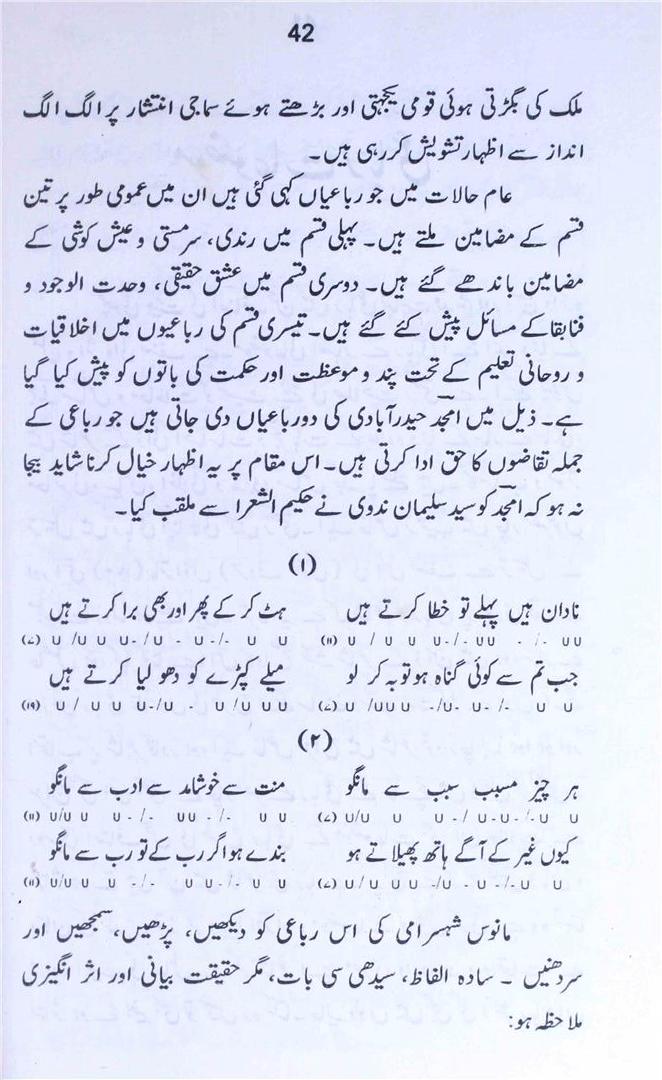 42
ملک کی بگڑتی ہوئی قومی یکجہتی اور بڑھتے ہوئے سماجی انتشار پر الگ الگ
انداز سے اظہار تشویش کررہی ہیں۔
عام حالات میں جو رباعیاں کہی گئی ہیں ان میں عمومی طور پر تین
قسم کے مضامین ملتے ہیں۔ پہلی قسم میں رندی، سرمستی و عیش کوشی کے
مضامین باندھے گئے ہیں۔ دوسری قسم میں عشق حقیقی، وحدت الوجود و
فنا بقا کے مسائل پیش کئے گئے ہیں۔ تیسری قسم کی رباعیوں میں اخلاقیات
و روحانی تعلیم کے تحت پند و موعظت اور حکمت کی باتوں کو پیش کیا گیا
ہے۔ ذیل میں امجد حیدرآبادی کی دو رباعیاں دی جاتی ہیں جو رباعی کے
جملہ تقاضوں کا حق ادا کرتی ہیں۔ اس مقام پر یہ اظہار خیال کرنا شاید بیجا
نہ ہو کہ امجد کو سید سلیمان ندوی نے حکیم الشعرا سے ملقب کیا۔
(۱)
نادان ہیں پہلے تو خطا کرتے ہیں ہٹ کر کے پھر اور بھی برا کرتے ہیں
جب تم سے کوئی گناہ ہو توبہ کر لو میلے کپڑے کو دھو لیا کرتے ہیں
(۲)
ہر چیز مسبب سبب سے مانگو منت سے خوشامد سے ادب سے مانگو
کیوں غیر کے آگے ہاتھ پھیلاتے ہو بندے ہو اگر رب کے تو رب سے مانگو
مانوس شہسرامی کی اس رباعی کو دیکھیں، پڑھیں، سمجھیں اور
سردھنیں ۔ سادہ الفاظ، سیدھی سی بات، مگر حقیقت بیانی اور اثر انگیزی
ملاحظہ ہو: